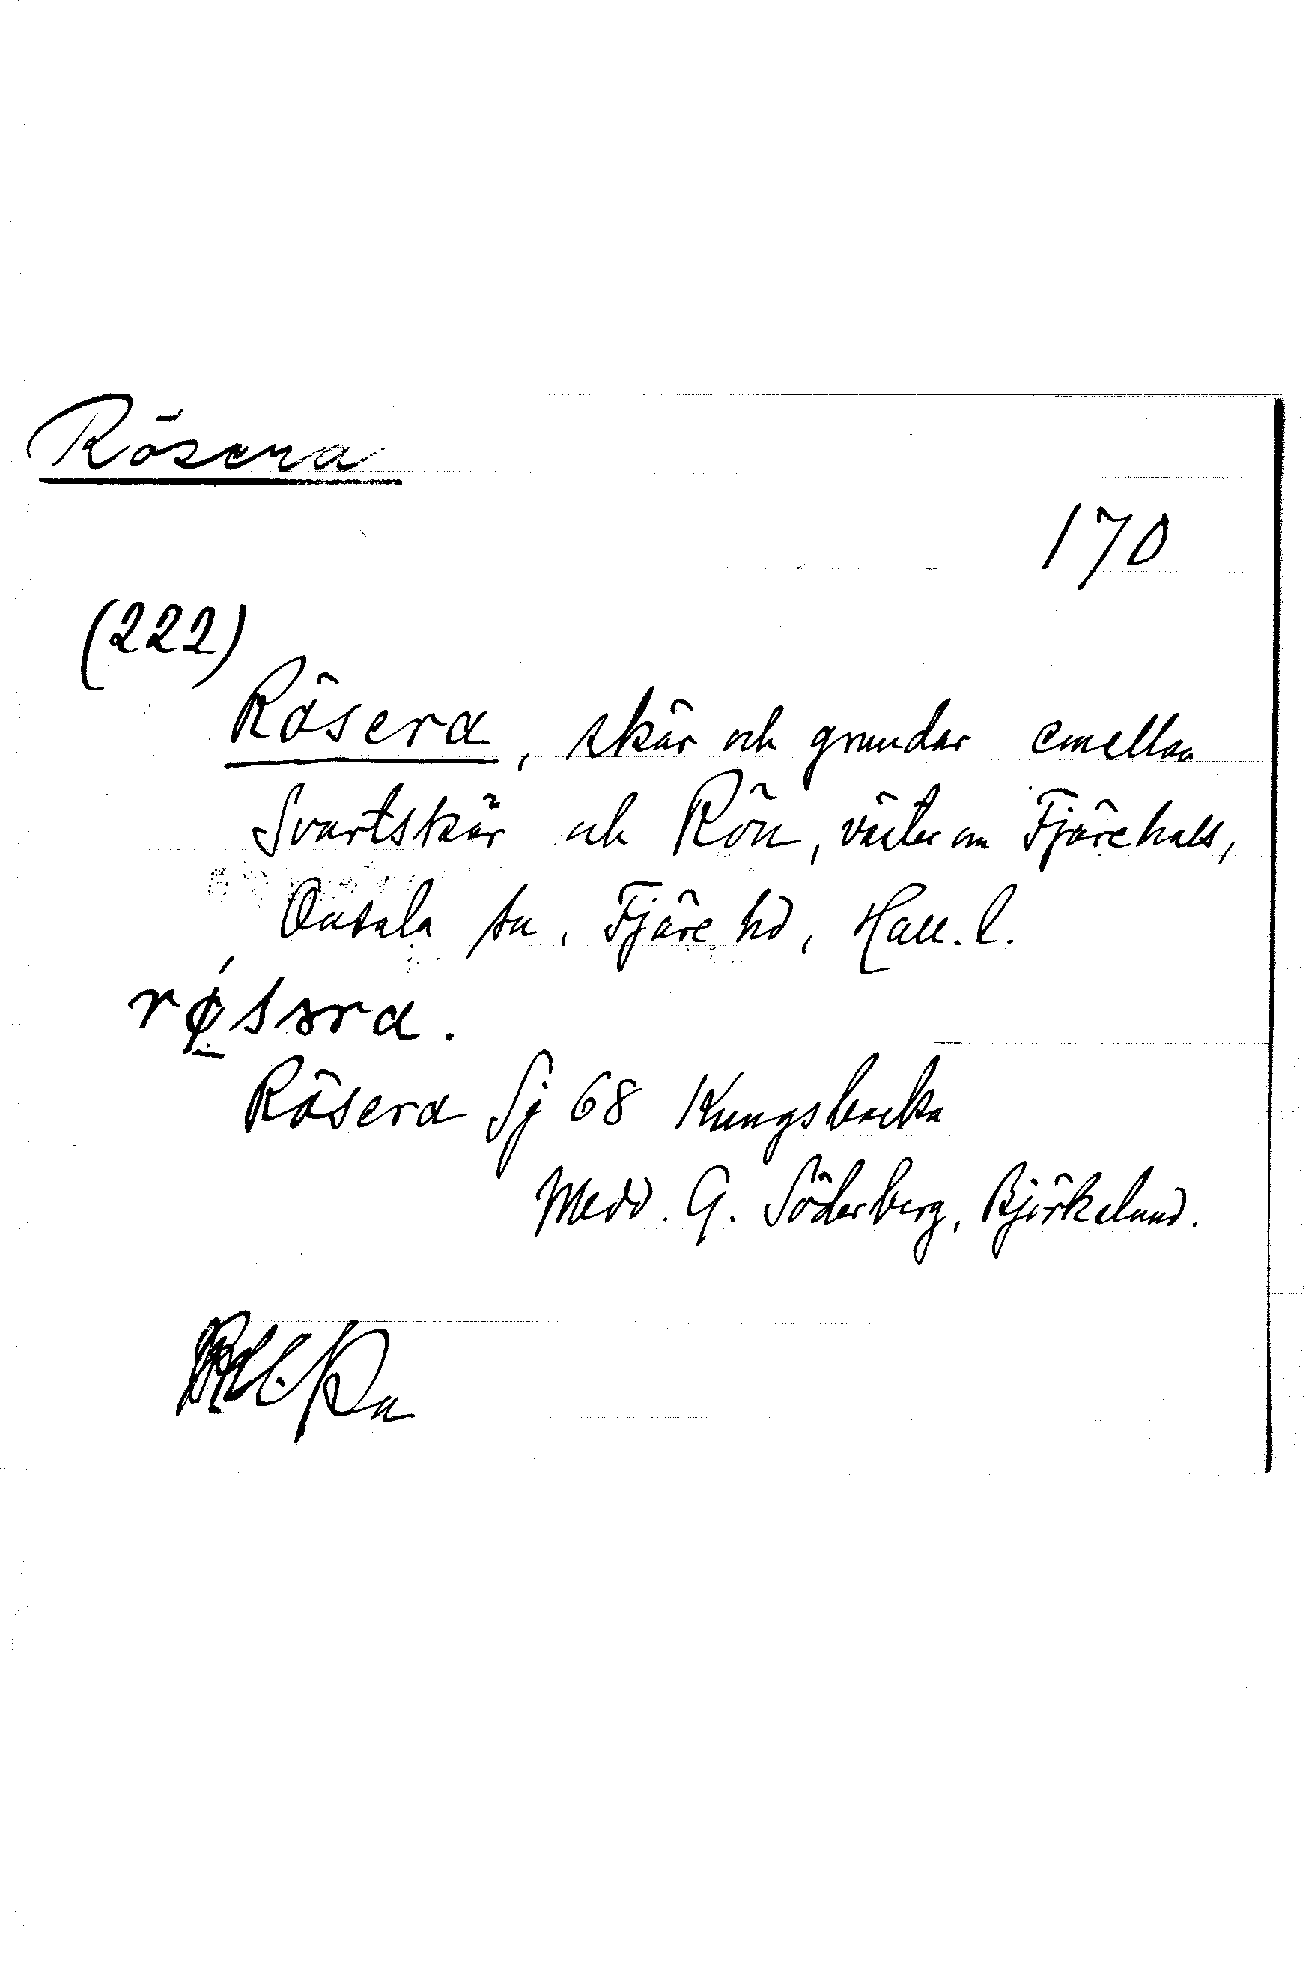 Rösera
170
(222)
Rösera, skär och grundar emellan
Svartskär och Rön, väster om Fjärehals,
Onsala sn, Fjäre hd, Hall. l.
Rösera Sj 68 Kungsbacka
Medd. G. Söderberg, Björkelund.